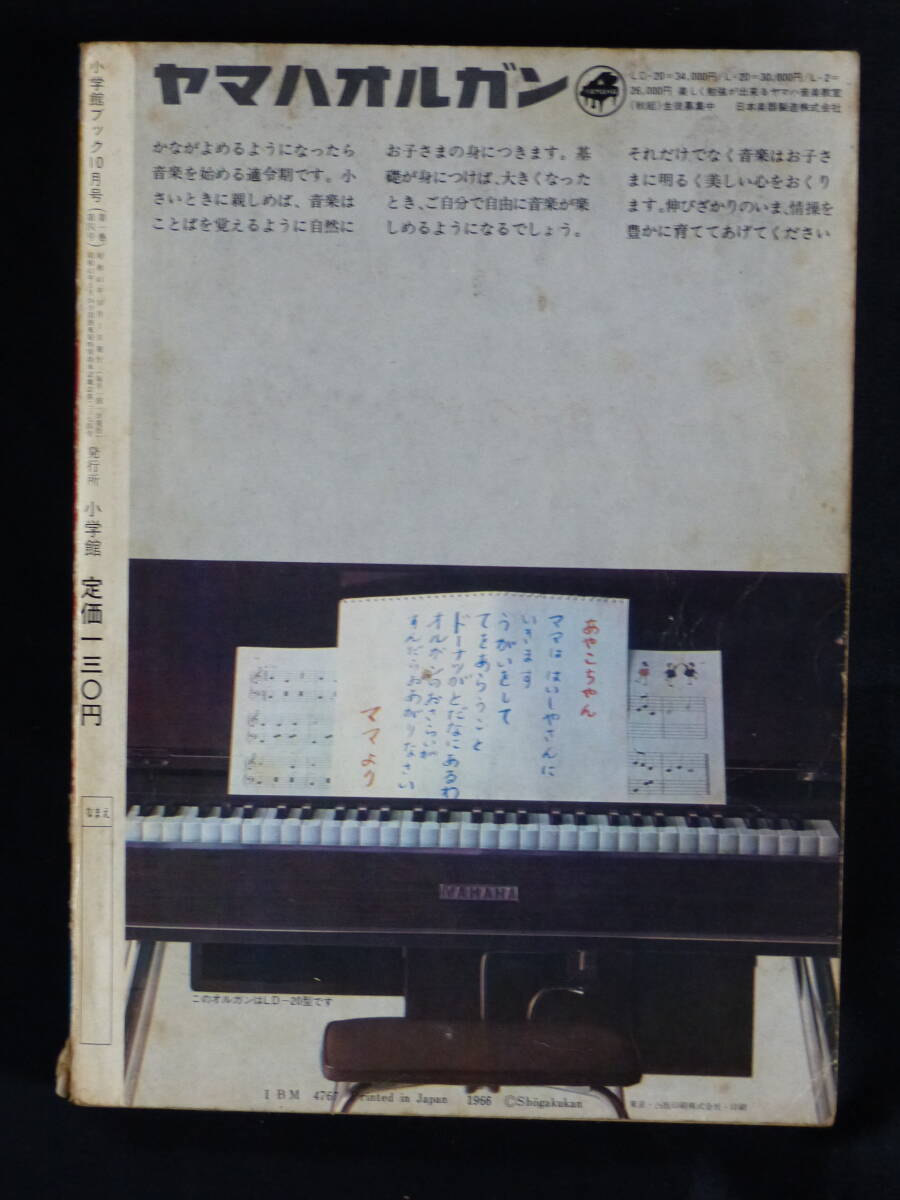 ヤマハオルガン
LD-20=34,000円/L-20=30,000円/L-2=
26,000円 楽しく勉強が出来るヤマハ音楽教室
(秋組)生徒募集中 日本楽器製造株式会社
かながよめるようになったら
音楽を始める適令期です。小
さいときに親しめば、音楽は
ことばを覚えるように自然に
お子さまの身につきます。基
礎が身につけば、大きくなった
とき、ご自分で自由に音楽が楽
しめるようになるでしょう。
それだけでなく音楽はお子さ
まに明るく美しい心をおくり
ます。伸びざかりのいま、情操を
豊かに育ててあげてください
あやこちゃん
ママは はいしゃさんに
いきます
うがいをして
てをあらうこと
ドーナツがとだなにあるわ
オルガンのおさらいが
すんだらおあがりなさい
ママより
YAMAHA
このオルガンはLD-20型です
IBM 4767 Printed in Japan 1966 ©Shōgakukan
小学館ブック10月号
発行所 小学館 定価一三〇円
なまえ